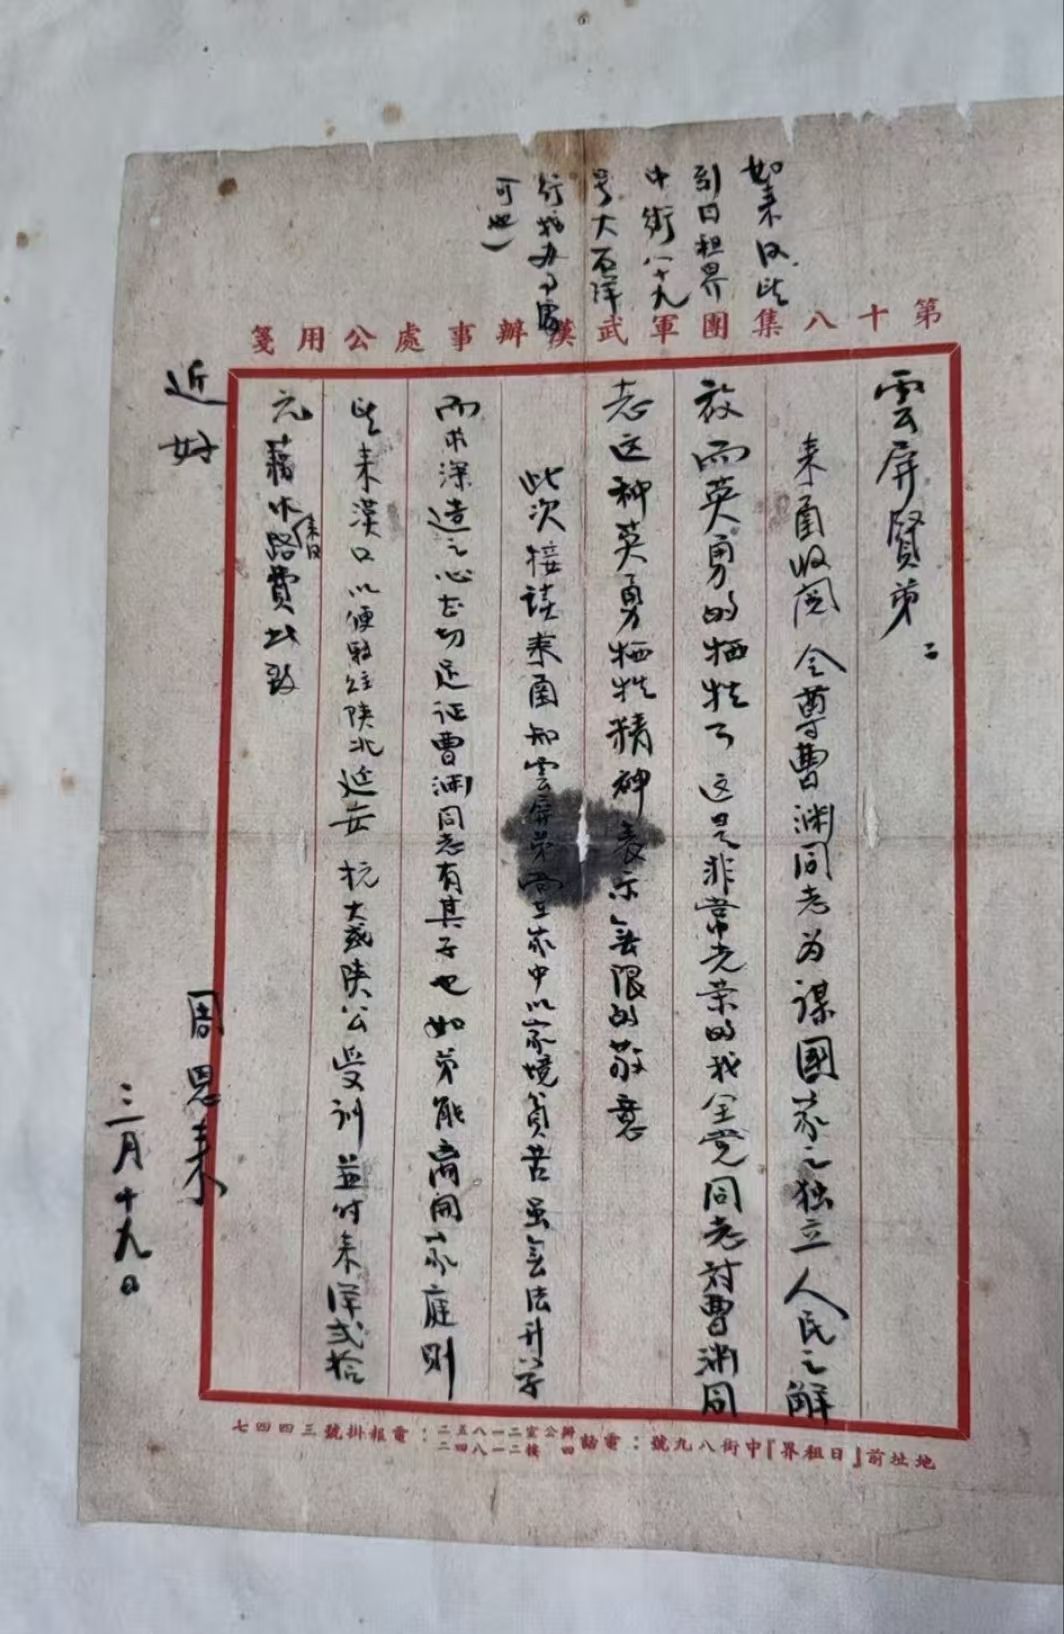 第十八集團軍武漢辦事處公用箋
雲屏賢弟：
来函收阅 令尊曹渊同志为谋国家之独立人民之解
放而英勇的牺牲了 这是非常光荣的我全党同志对曹渊同
志这种英勇牺牲精神表示無限的敬意
此次接读来函知雲屏弟尚在家中以家境貧苦虽無法升学
而求深造之心甚切足证曹渊同志有其子也如弟能离开家庭则
望来漢口以便転往陕北延安 抗大或陕公受训 並付来洋弍拾
元藉作来日路費此致
近好
周恩来
三月十九日
如来汉望
到日租界
中街八十九
号大石洋
行我办事處
可也）
地址前『日租界』中街八九號：電話 辦公室二一八五二 四樓二一八四二：電報掛號三四四七